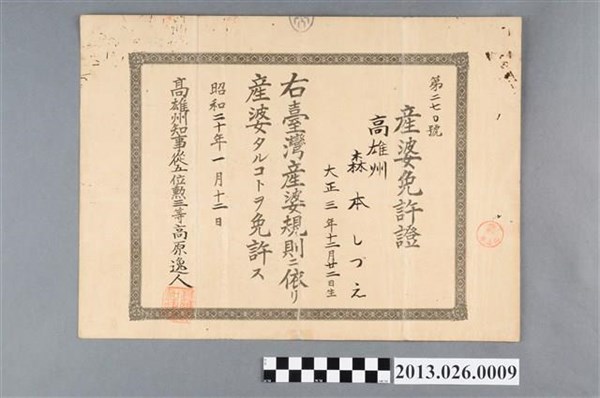 第二七〇號
産婆免許證
高雄州
森本しづえ
大正三年十二月廿二日生
右臺灣産婆規則ニ依リ
産婆タルコトヲ免許ス
昭和二十年一月十二日
高雄州知事從五位勲三等高原逸人
2013.026.0009